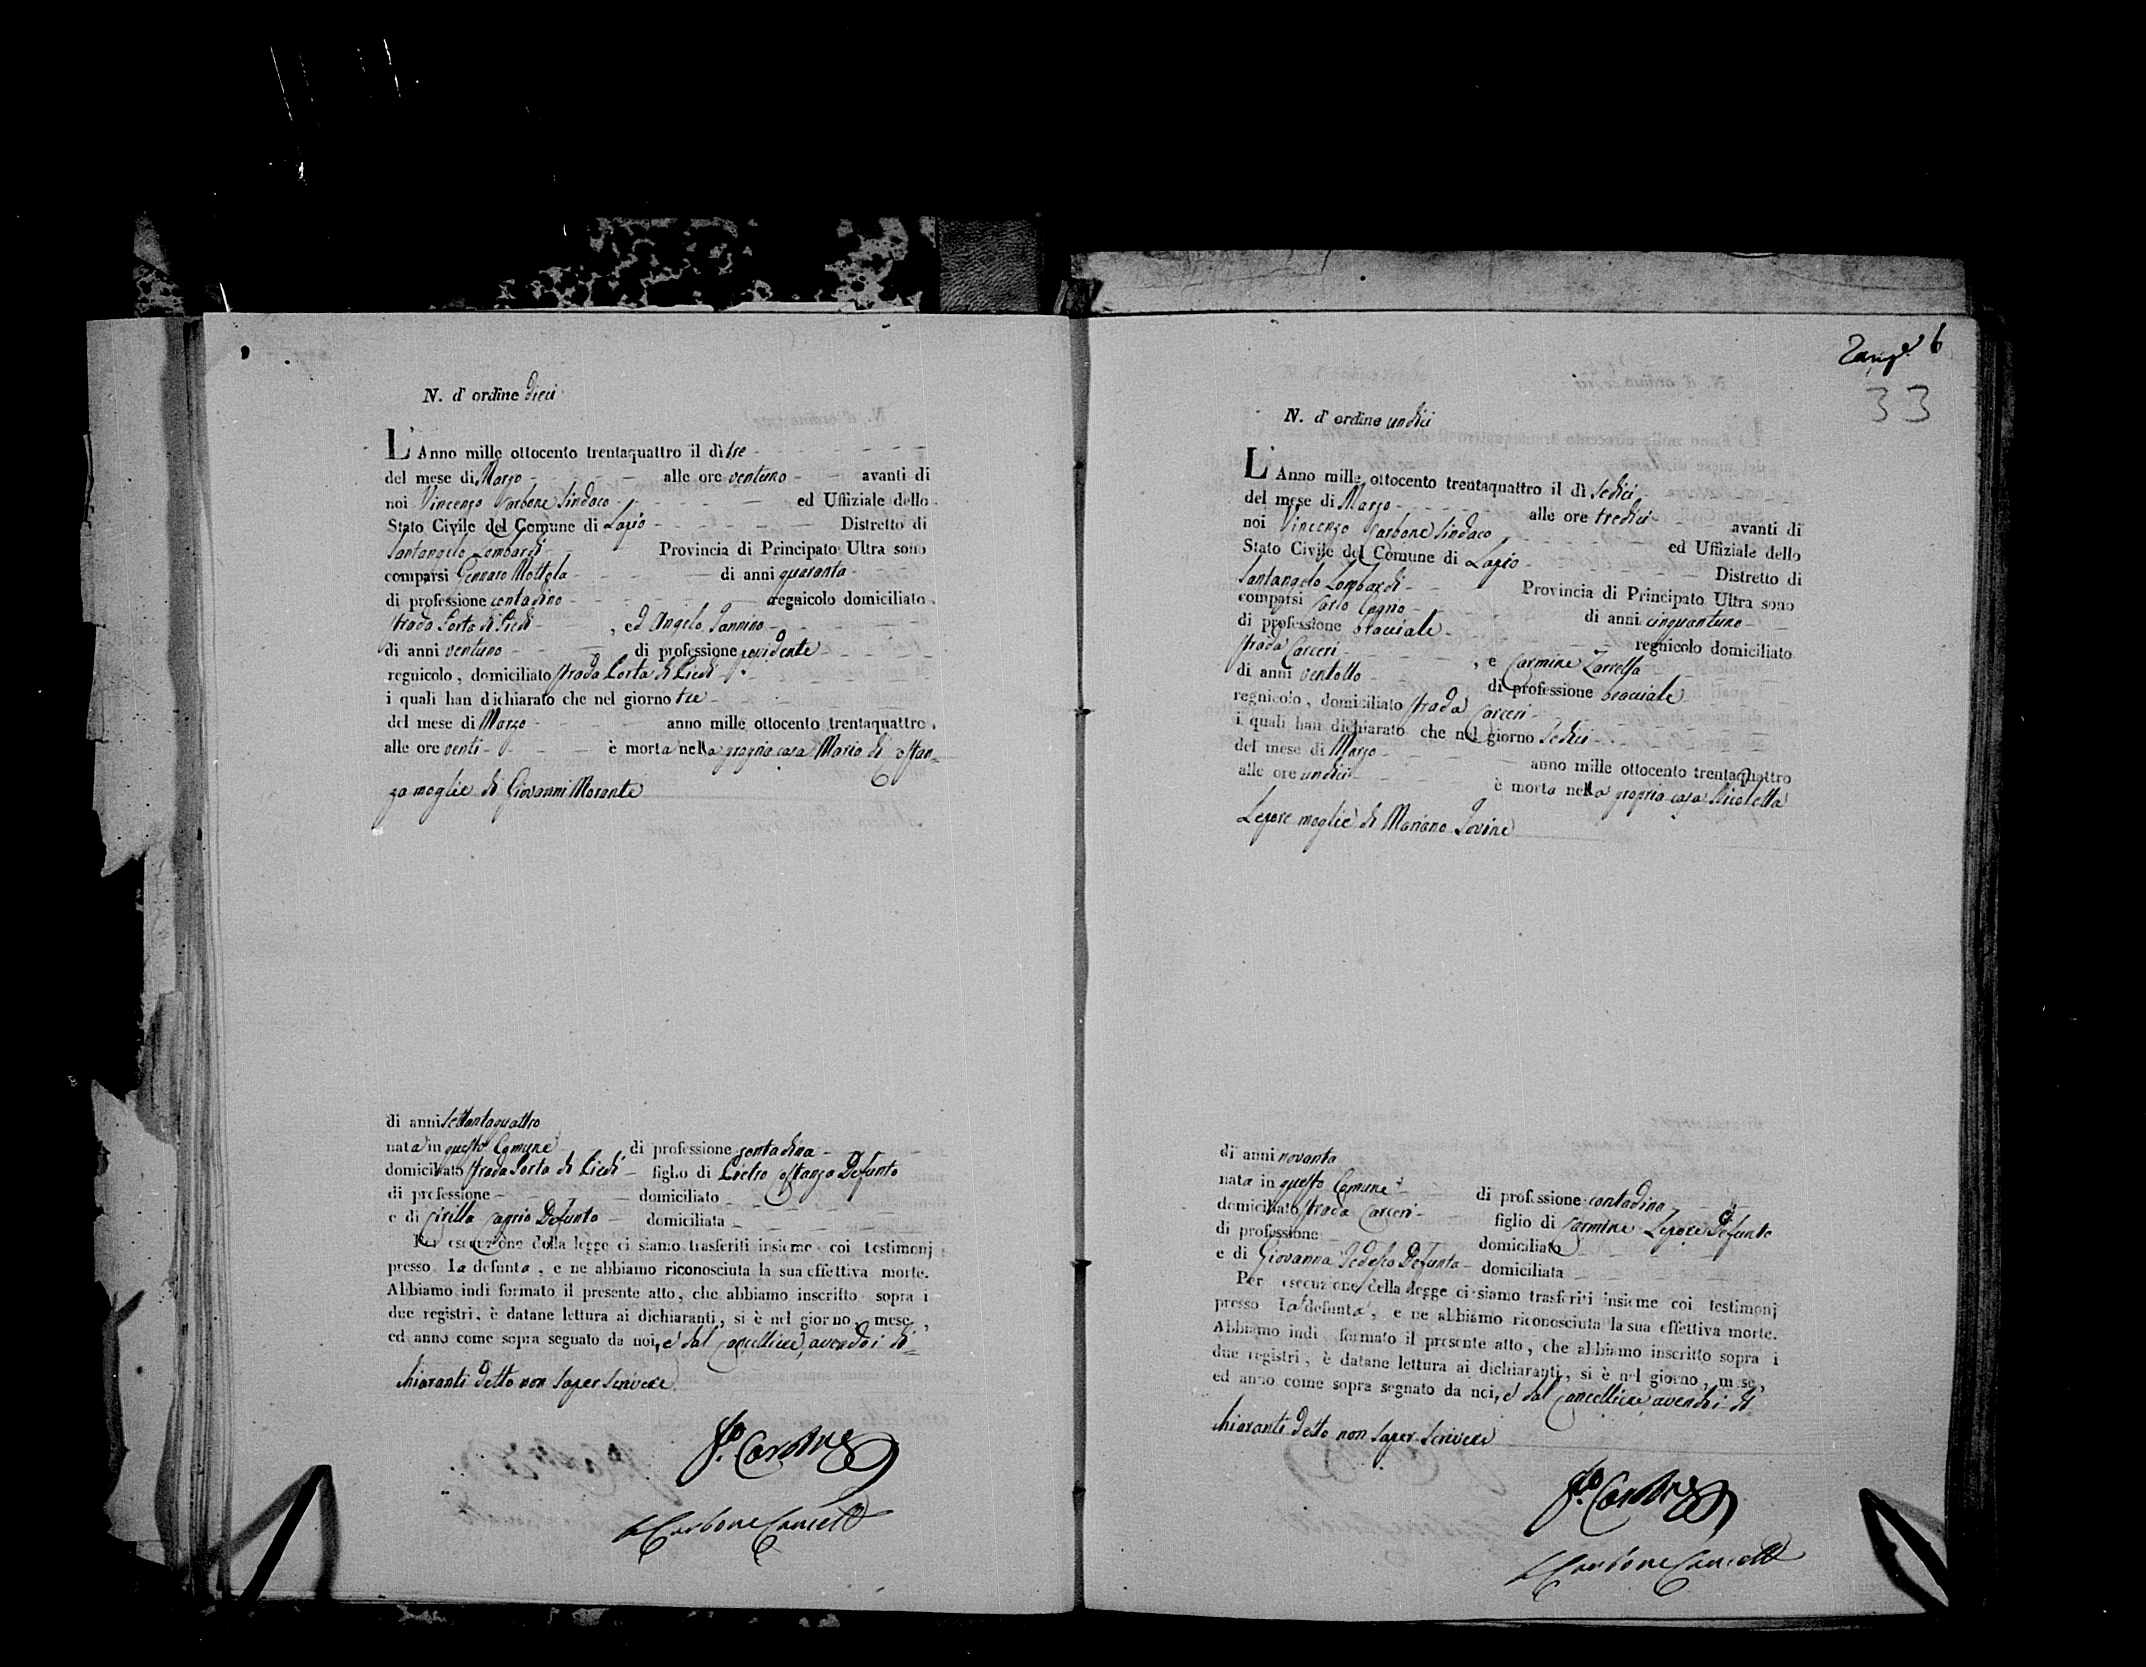 N. d' ordine Dieci
L' Anno mille ottocento trentaquattro il dì tre
del mese di Marzo alle ore ventuno avanti di
noi Vincenzo Carbone Sindaco ed Uffiziale dello
Stato Civile del Comune di Lapio Distretto di
Santangelo Lombardi Provincia di Principato Ultra sono
comparsi Gennaro Mottola di anni quaranta
di professione contadino regnicolo domiciliato
strada Porta di Piedi , ed Angelo Iannino
di anni ventuno di professione
regnicolo, domiciliato strada Porta di Piedi
i quali han dichiarato che nel giorno tre
del mese di Marzo anno mille ottocento trentaquattro
alle ore venti è morta nella propria casa Maria di Costan=
za moglie di Giovanni Morante
di anni settantaquattro
nata in questo Comune di professione contadina
domiciliato strada Porta di Piedi figlio di Pietro Costanzo Defunto
di professione domiciliato
e di Cirilla Caprio Defunto domiciliata
Per esecuzione della legge ci siamo trasferiti insieme coi testimonj
presso la defunta, e ne abbiamo riconosciuta la sua effettiva morte.
Abbiamo indi formato il presente atto, che abbiamo inscritto sopra i
due registri, è datane lettura ai dichiaranti, si è nel giorno, mese,
ed anno come sopra segnato da noi, e dal Cancelliere, avendo i di=
chiaranti detto non saper scrivere
V. Carbone
Carbone Cancell
Zampe 6
33
N. d' ordine undici
L' Anno mille ottocento trentaquattro il dì Sedici
del mese di Marzo alle ore tredici avanti di
noi Vincenzo Carbone Sindaco ed Uffiziale dello
Stato Civile del Comune di Lapio Distretto di
Santangelo Lombardi Provincia di Principato Ultra sono
comparsi Carlo Cogno di anni cinquantuno
di professione bracciale regnicolo domiciliato
strada Carceri , e Carmine Zarrella
di anni ventotto di professione bracciale
regnicolo, domiciliato strada Carceri
i quali han dichiarato che nel giorno Sedici
del mese di Marzo anno mille ottocento trentaquattro
alle ore undici è morta nella propria casa Nicoletta
Lepore moglie di Mariano Iovine
di anni novanta
nata in questo Comune di professione contadina
domiciliato strada Carceri figlio di Carmine Lepore Defunto
di professione domiciliato
e di Giovanna Tedesco Defunta domiciliata
Per esecuzione della legge ci siamo trasferiti insieme coi testimonj
presso la defunta, e ne abbiamo riconosciuta la sua effettiva morte.
Abbiamo indi formato il presente atto, che abbiamo inscritto sopra i
due registri, è datane lettura ai dichiaranti, si è nel giorno, mese,
ed anno come sopra segnato da noi, e dal Cancelliere avendo i di=
chiaranti detto non saper scrivere
V. Carbone
Carbone Cancell